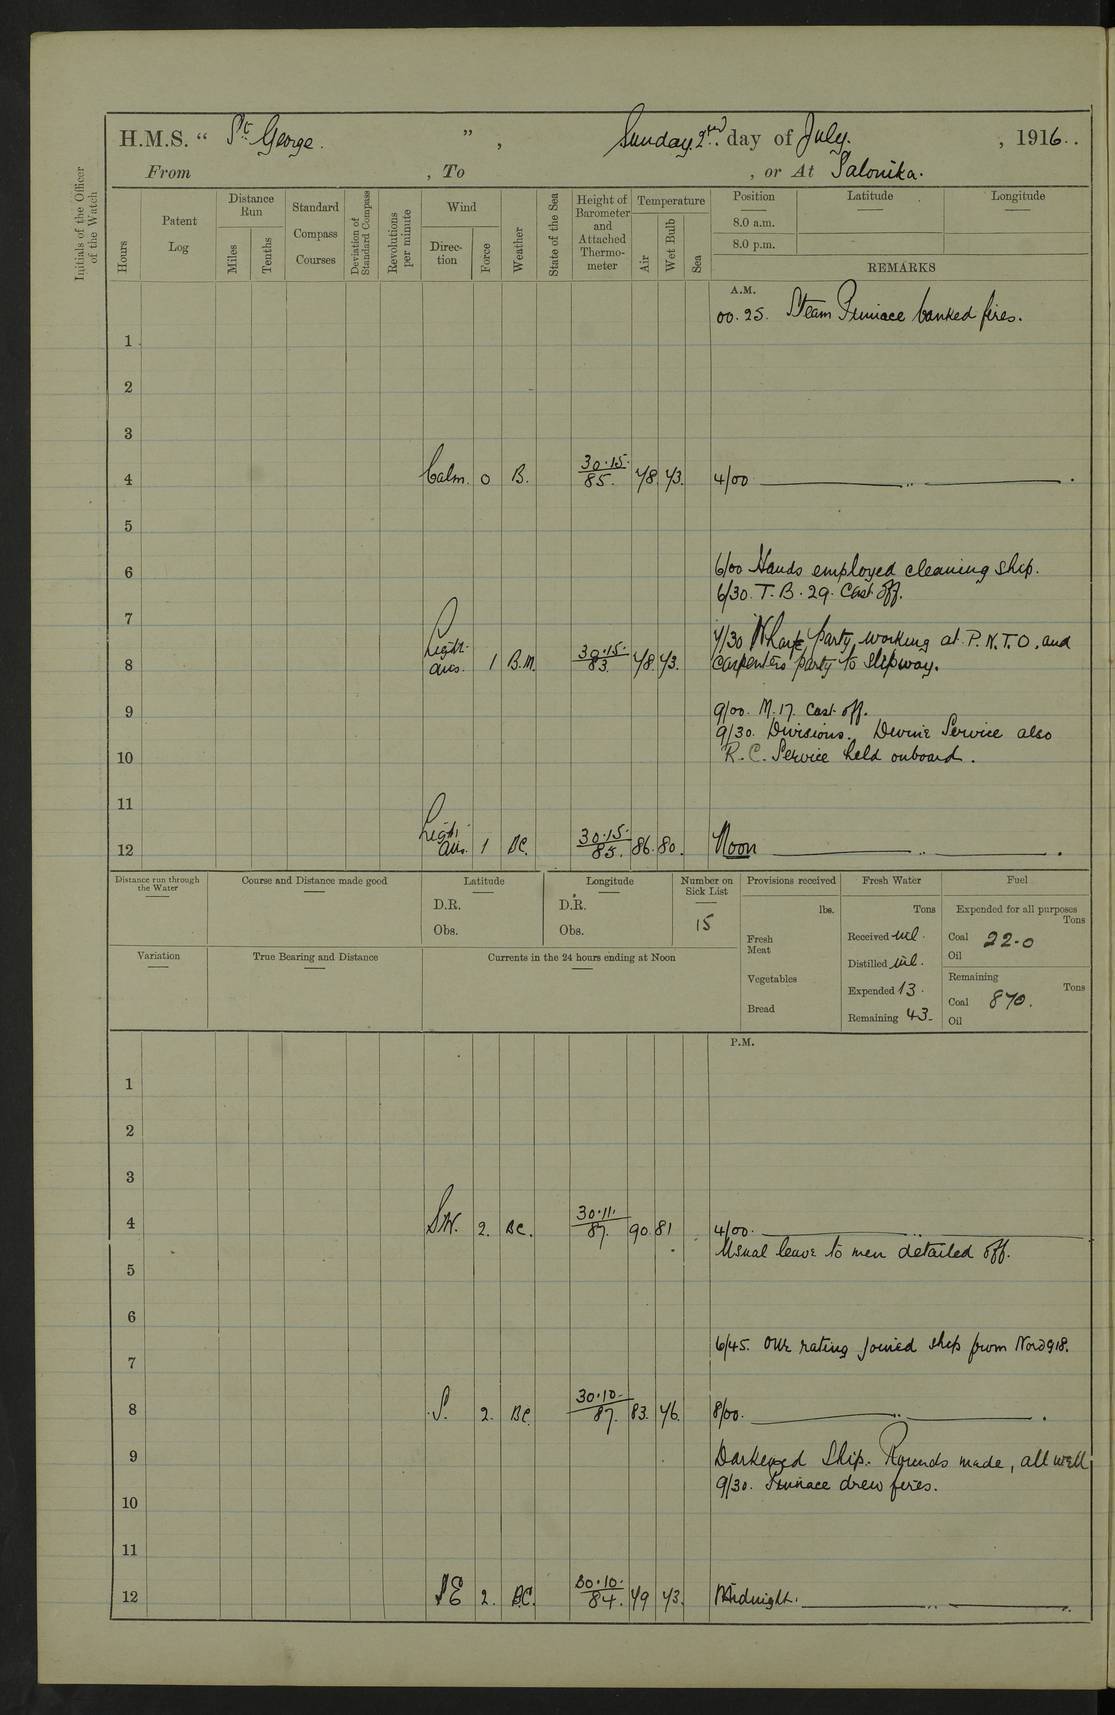 H.M.S. “ St. George. ”, Sunday. 2nd. day of July. , 1916..
From , To , or At Salonika.
Initials of the Officer of the Watch
Hours
Patent Log
Distance Run
Miles
Tenths
Standard Compass Courses
Deviation of Standard Compass
Revolutions per minute
Wind
Direc-tion
Force
Weather
State of the Sea
Height of Barometer and Attached Thermo-meter
Temperature
Air
Wet Bulb
Sea
Position Latitude Longitude
8.0 a.m.
8.0 p.m.
REMARKS
A.M.
00.25. Steam Pinnace banked fires.
1
2
3
4 Calm. 0 B. 30.15. 85. 78. 73. 4/00
5
6 6/00 Hands employed cleaning ship.
6/30. T.B. 29. Cast off.
7
7/30 Wharf party working at P.N.T.O. and
8 Light airs. 1 B.M. 30.15. 83. 78. 73. Carpenters party to slipway.
9 9/00. M.17. Cast off.
9/30. Divisions. Divine Service also
10 R.C. Service held onboard.
11
12 Light airs. 1 BC. 30.15. 85. 86. 80. Noon
Distance run through the Water
Course and Distance made good
Latitude
D.R.
Obs.
Longitude
D.R.
Obs.
Number on Sick List
15
Provisions received
lbs.
Fresh Meat
Vegetables
Bread
Fresh Water
Tons
Received nil.
Distilled nil.
Expended 13.
Remaining 43.
Fuel
Expended for all purposes
Tons
Coal 22.0
Oil
Remaining
Tons
Coal 870.
Oil
Variation
True Bearing and Distance
Currents in the 24 hours ending at Noon
P.M.
1
2
3
4 SW. 2. BC. 30.11. 87. 90. 81 4/00.
Usual leave to men detailed off.
5
6
6/45. One rating joined ship from Nord 918.
7
8 S. 2. BC. 30.10. 87. 83. 76. 8/00.
9 Darkened Ship. Rounds made, all well
9/30. Pinnace drew fires.
10
11
12 SE 2. BC. 30.10. 84. 79 73. Midnight.